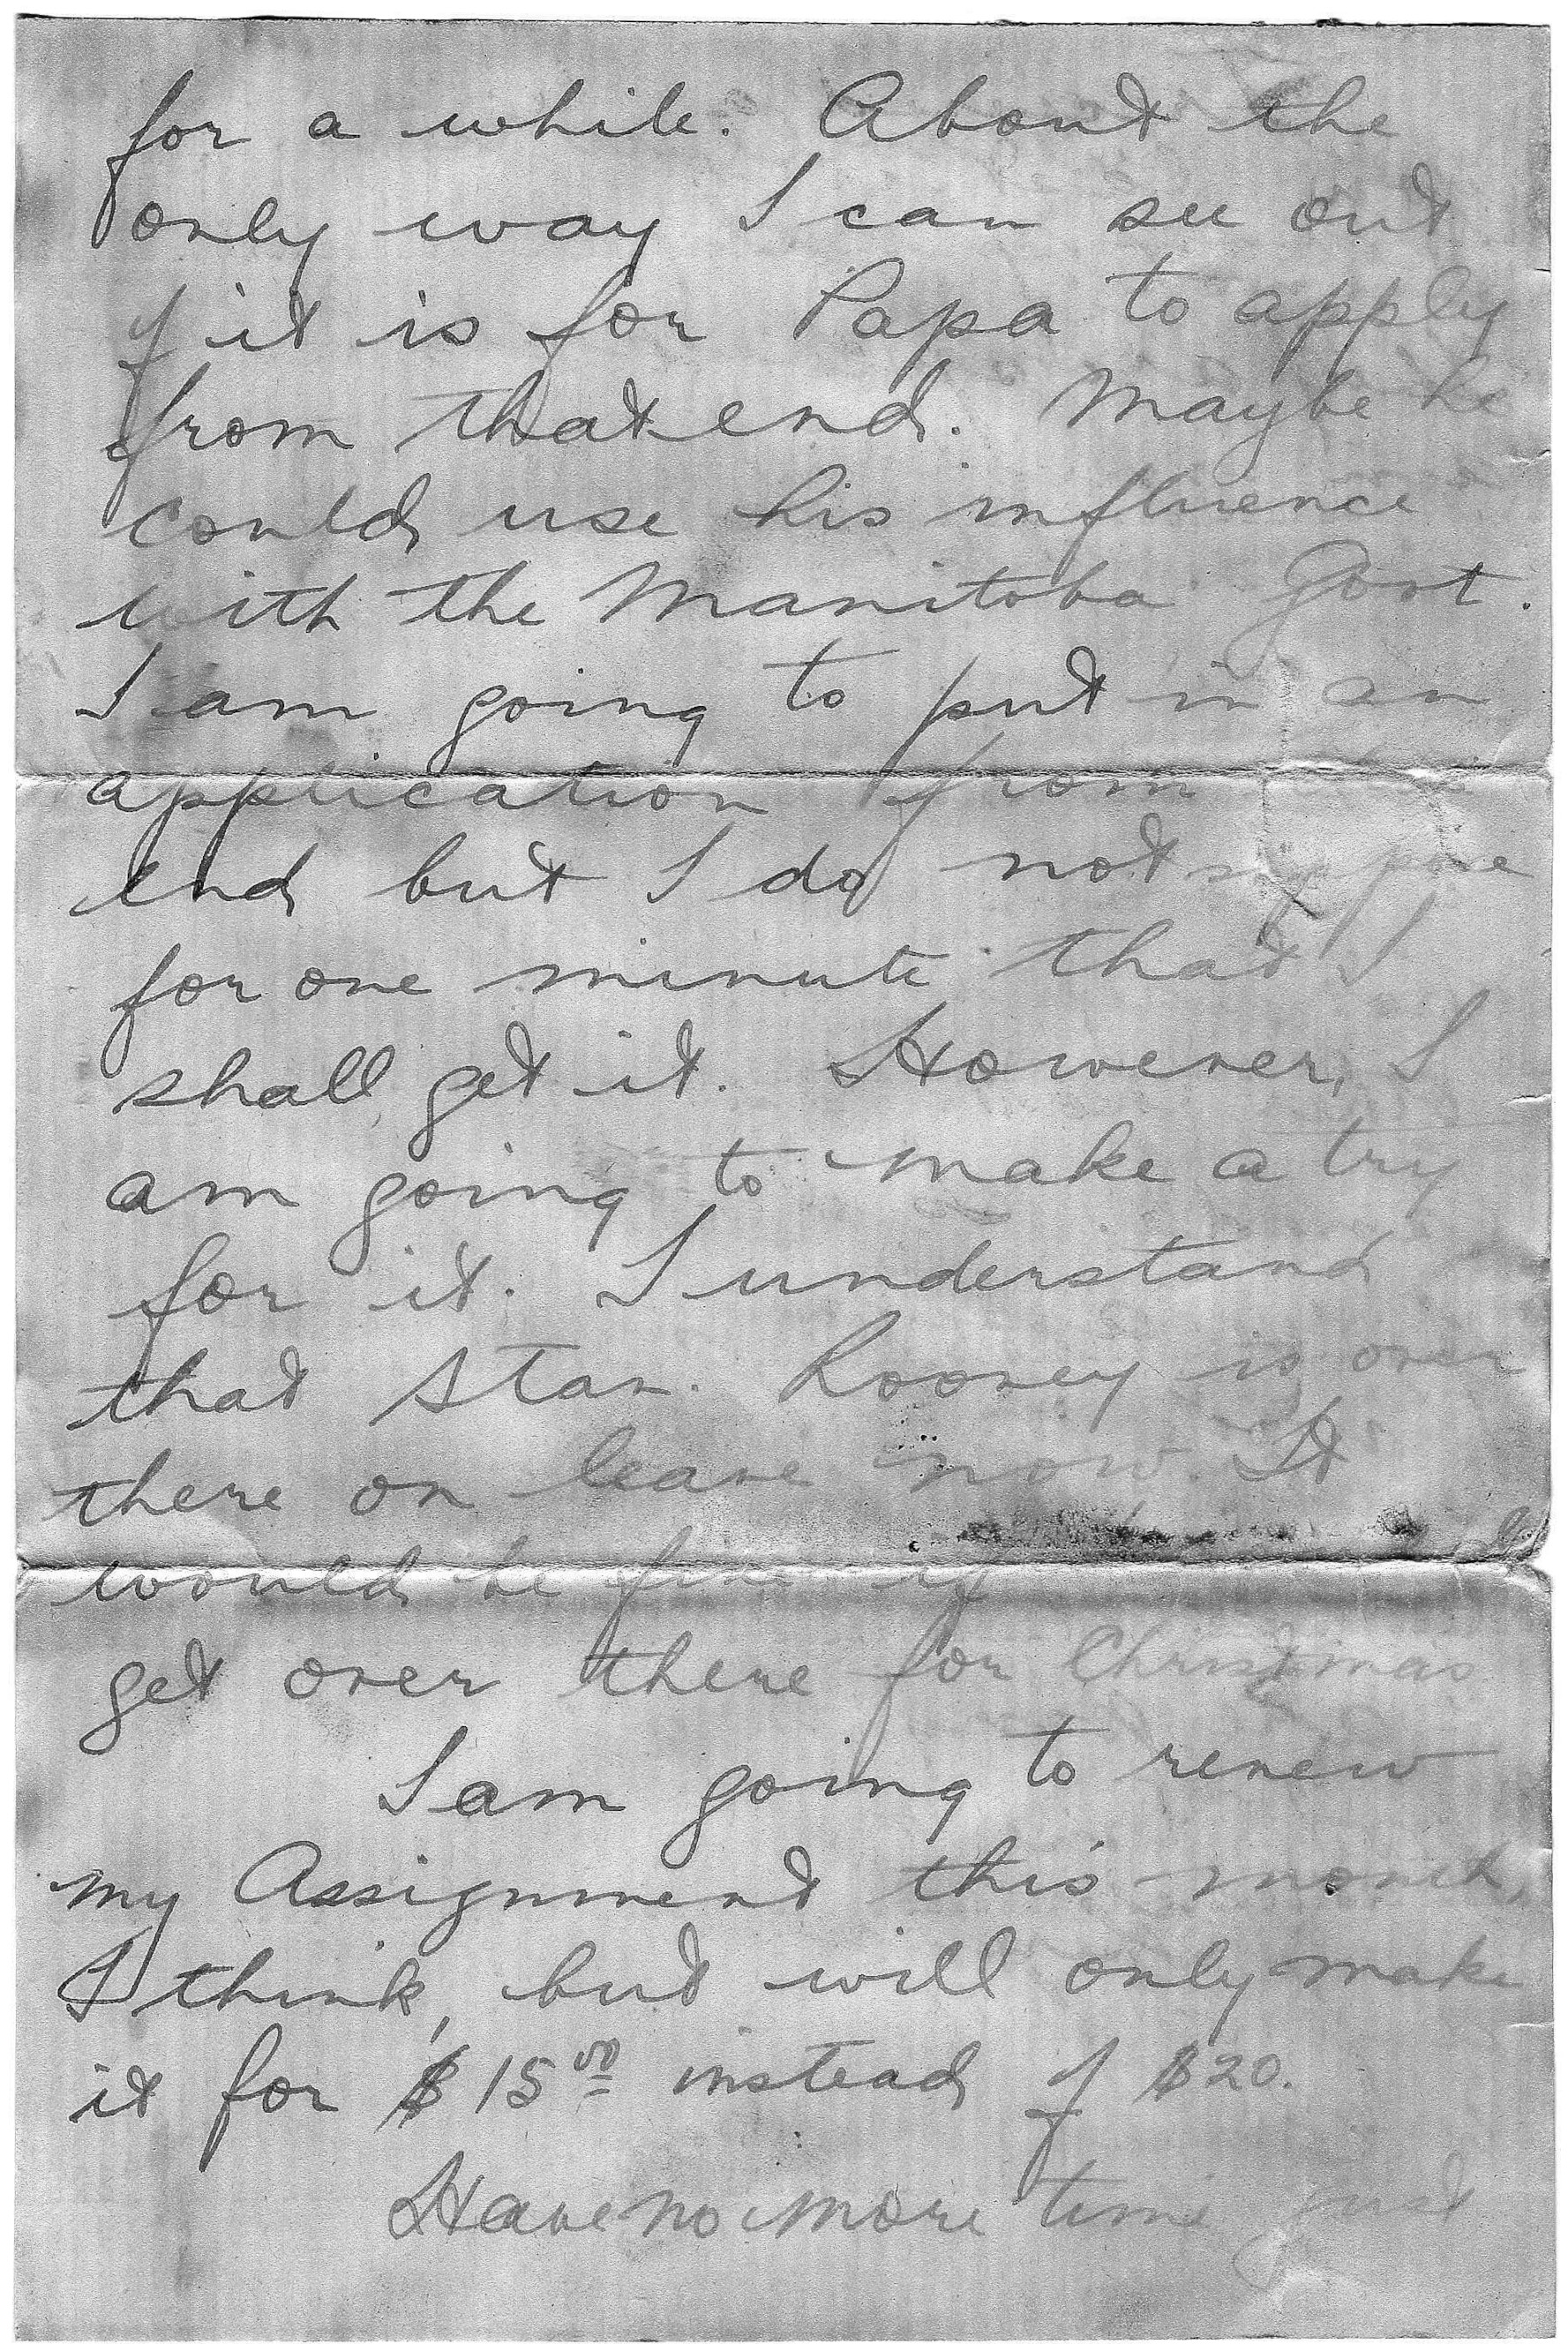 for a while. About the
only way I can see out
of it is for Papa to apply
from that end. Maybe he
could use his influence
with the Manitoba Govt.
I am going to put in an
application from
end but I do not suppose
for one minute that I
shall get it. However, I
am going to make a try
for it. I understand
that Stan. Rooney is over
there on leave now. It
would be fine if
get over there for Christmas
I am going to renew
my Assignment this month,
I think, but will only make
it for $15.00 instead of $20.
Have no more time just